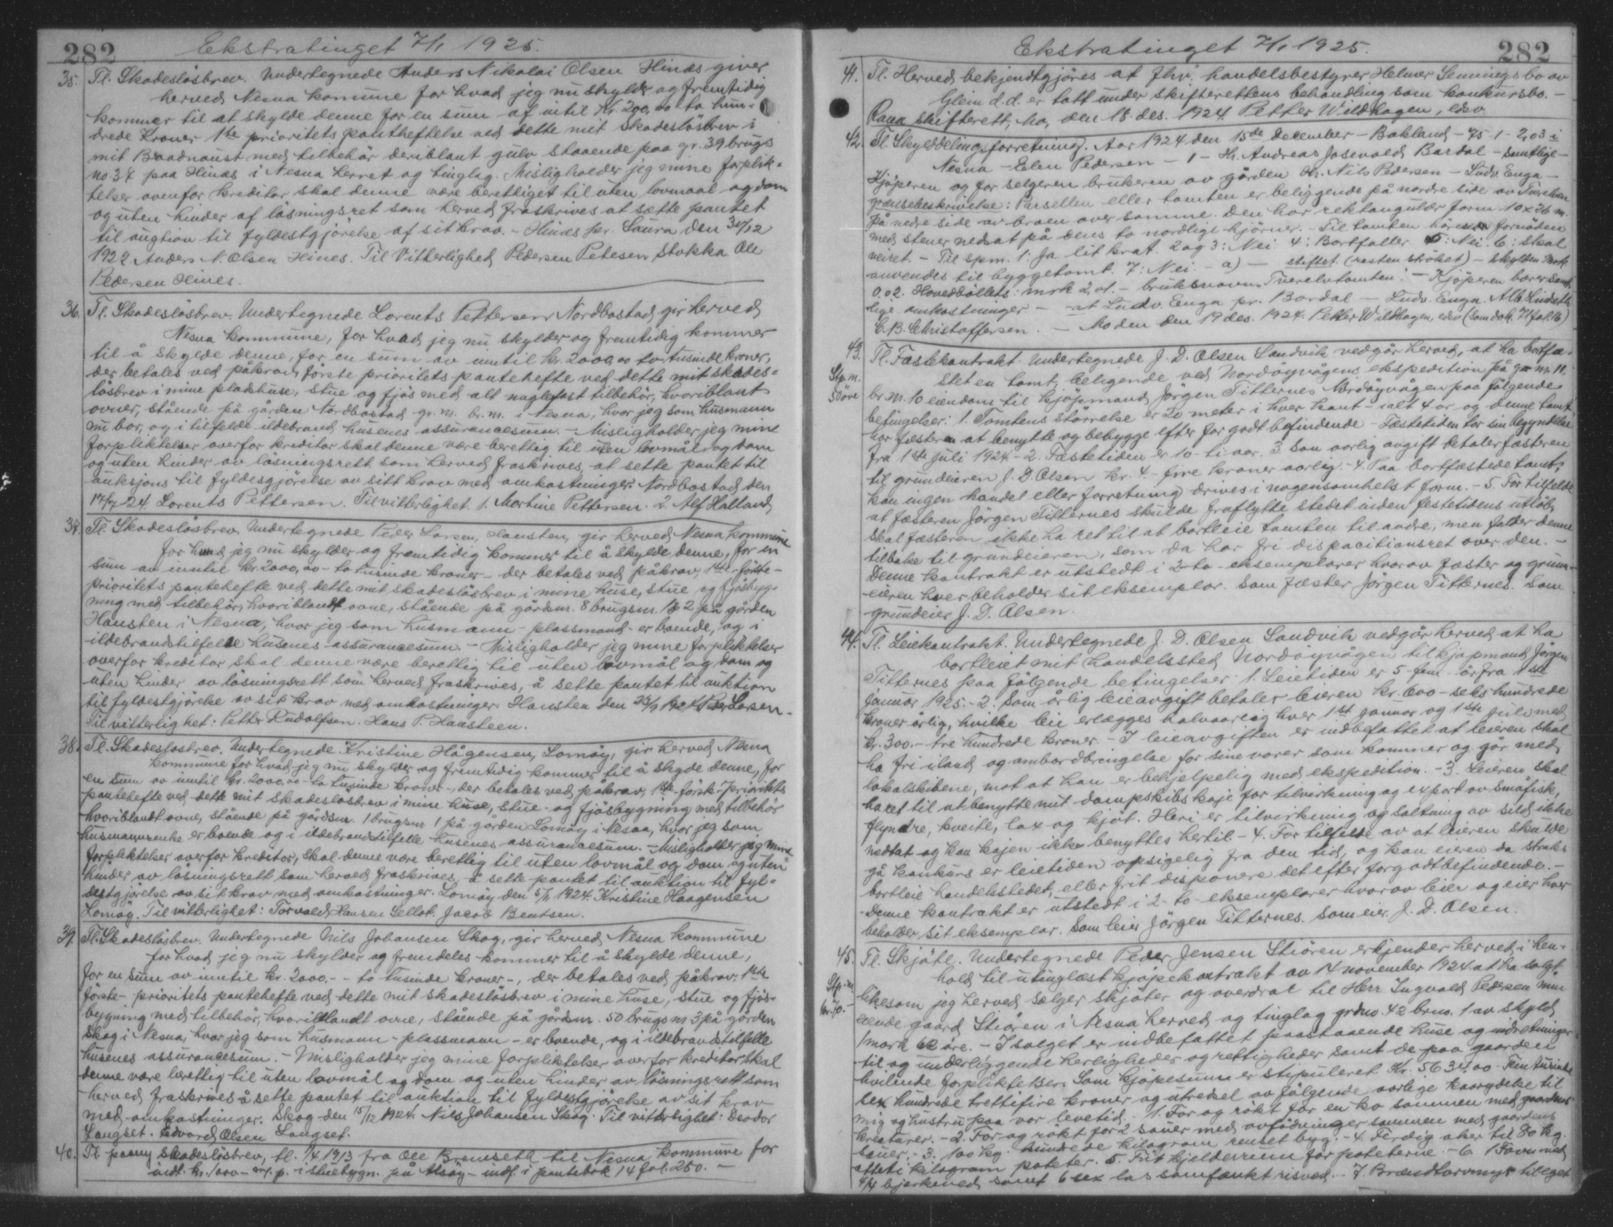 282 Ekstratinget 7/1 1925.
35. Tl. Skadeslösbrev. Undertegnede Anders Nikolai Olsen Hinæs giver
herved Nesna kommune for hvad jeg nu skylder og fremtidig
kommer til at skylde denne for en sum af intil Kr 200,00 to hun-
drede Kroner 1ste prioritets pantheftelse ved dette mit Skadeslösbrev i
mit Baadnaust med tilbehör deriblant gulv staaende paa gr. 39 brugs
no 34 paa Hinæs i Nesna Herret og tinglag. Misligholder jeg mine forplik-
telser ovenfor kreditor skal denne være berettiget til uten lovmaal og dom
og uten hinder af läsningsret som herved fraskrives at sette pantet
til augtion til fyldestgjörelse af sit krav. - Hinæs pr. Saura den 30/12
1922 Anders N. Olsen Hines. Til Vitterlighed Pedersen Petesen Stokka Ole
Pedersen Hines.
36. Tl. Skadeslösbrev. Undertegnede Lorents Pettersen Nordbostad gir herved
Nesna kommune, for hvad jeg nu skylder og fremtidig kommer
til å skylde denne, for en sum av inntil kr. 2000,00 to tusinde kroner,
der betales ved påkrav, förste prioritets pantehefte ved dette mit skades-
lösbrev i mine pladshuse, stue og fjös med alt naglefast tilbehör, hvoriblant
ovner, stående på gården Nordbostad gr. nr. br. nr. i Nesna, hvor jeg som husmann
nu bor, og i tilfelde ildebrand husenes assurancesum. - Misligholder jeg mine
forpliktelser overfor kreditor skal denne være berettig til uten lovmål og dom
og uten hinder av läsningsrett som herved fraskrives, at sette pantet til
auksjons til fyldesgjörelse av sitt krav med omkostninger. Nordbostad den
17/7-24 Lorents Pettersen. Til vitterlighet. 1. Martine Pettersen. 2. Alf Hatland
37. Tl. Skadeslösbrev. Undertegnede Peder Larsen, Hansten, gir herved Nesna kommune
for hvad jeg nu skylder og fremtidig kommer til å skylde denne, for en
sum av inntil kr. 2000,00 - to tusinde kroner - der betales ved påkrav, 1ste förste -
prioritets pantehefte ved dette mit skadeslösbrev i mine huse, stue og fjösbyg-
ning med tilbehör, hvoriblandt ovne, stående på gårdsnr. 8 brugsnr. 1 & 2 på gården
Hansten i Nesna, hvor jeg som husmann - plassmand - er boende, og i
ildebrandstilfelle husenes assurancesum. - Misligholder jeg mine forpliktelser
overfor kreditor skal denne være berettig til uten lovmål og dom og
uten hinder av läsningsrett som herved fraskrives, å sette pantet til auktion
til fyldestgjörelse av sit krav med omkostninger. Hansten den 1924 Peder Larsen -
Til vitterlighet: Petter Rudolfsen. Hans P. Haasteen.
38. Tl. Skadeslosbrev. Undertegnede Kristine Hågensen, Lomöy, gir herved Nesna
kommune for hvad jeg nu skylder og fremtidig kommer til å skyde denne, for
en sum av inntil kr. 2000,00 - to tusinde kroner -, der betales ved påkrav, 1ste förste - prioritets
pantehefte ved dette mit skadeslösbrev i mine huse, stue - og fjösbygning med tilbehör
hvoriblandt ovne, stående på gårdsnr. 1 brugsnr. 1 på gården Lomöy i Nesna, hvor jeg som
husmannsenke er boende og i ildebrandstilfelle husenes assurancesum. - Misligholder jeg mine
forpliktelser overfor kreditor, skal denne være berettig til uten lovmål og dom og uten
hinder av läsningsrett som herved fraskrives, å sette pantet til auktion til fyl-
destgjörelse av sit krav med omkostninger. Lomöy den 5/7 1924. Kristine Haagensen
Lomöy. Til vitterlighet: Torvald Hansen Sellöt. Jacob Bentsen.
39. Tl. Skadeslösbrev. Undertegnede Nils Johansen Skog, gir herved Nesna kommune
for hvad jeg nu skylder og fremdeles kommer til å skylde denne,
for en sum av inntil kr. 2000,- - to tusinde kroner -, der betales ved påkrav, 1ste
förste - prioritets pantehefte ved dette mit skadeslösbrev i mine huse, stue og fjös-
bygning med tilbehör, hvoriblandt ovne, stående på gårdsnr. 50 brugsnr. 3 på gården
Skog i Nesna, hvor jeg som husmann - plassmann - er boende, og i ildebrandstilfelle
husenes assurancesum. - Misligholder jeg mine forpliktelser overfor kreditor skal
denne være berettig til uten lovmål og dom og uten hinder av läsningsrett som
herved fraskrives å sette pantet til auktion til fyldestgjörelse av sit krav
med omkostninger. Skog den 15/12 1924. Nils Johansen Skog. Til vitterlighet: Teodor
Langset. Edvard Olsen Langset.
40. Tl. paany skadeslösbrev, tl. 1/4 1913 fra Ole Bremseth til Nesna kommune for
indt. kr. 1000 - m. p. i stuebygn. på Alsöy - indf. i pantebok 14 fol. 250. -
Ekstratinget 7/1 1925. 282
41. Tl. Herved bekjendtgjöres at fhv. handelsbestyrer Helmer Senningsbo av
Glein d.d. er tatt under skifterettens behandling som konkursbo. -
Rana skifterett, Mo, den 18 des. 1924 Petter Wildhagen, edsv
42. Tl. Skylddelingsforretning. Aar 1924 den 15de December - Bakland - 75 - 1 - 2,03 i
Nesna - Elen Pedersen - 1 - Hr. Andreas Josevald Bardal - Samtlige -
Kjöperen og for selgeren brukeren av gården Hr. Nils Pedersen - Ludv Enga -
Grænsebeskrivelse: Parsellen eller tomten er beliggende på nordre side av
på nedre side av broen over samme. Den har rektangulær form 10 x 26 m.
med stener nedsat på dens to nordlige hjörner. - Til tomten hörer fornöden
veiret - Til spm. 1: Ja lit krat. 2 og 3: Nei 4: Bortfaller 5: Nei 6: skal
anvendes til byggetomt. 7: Nei - a) - stiftet (resten ströket) - skylden mrk
0,02. Hovedböllets: mrk 2,01. - bruksnavn - Tverelvtomten. - Kjöperen bærer samt-
lige omkostninger - Ludv Enga pr. Bardal - Ludv. Enga. Alb Lindseth
C. B. Christoffersen. - Mo den 19 des. 1924. Petter Wildhagen, edsv (
43. Tl. Fæstekontrakt. Undertegnede J. D. Olsen Sandvik vedgår herved, at ha bortfæ-
Stp. m. stet en tomt, beligende ved Nordöyvågens ekspedition på gr. nr. 11.
50 öre br. nr. 10 eiendom til kjöpmand Jörgen Titternes Nordöyvågen paa fölgende
betingelser: 1. Tomtens störrelse er 20 meter i hver kant - ialt 4 ar, og denne tomt
har fæsteren at benytte og bebygge efter for godt befindende. Fæstetiden tar sin begyndelse
fra 1ste juli 1924. - 2. Fæstetiden er 10 - ti aar. 3. Som aarlig avgift betaler fæsteren
til grundeieren J. D. Olsen kr. 4 - fire kroner aarlig. - 4. Paa bortfæstede tomt,
kan ingen handel eller forretning drives i nogensomhelst form. - 5. For tilfelde
at fæsteren Jörgen Titternes skulde fraflytte stedet inden festetidens utlöb,
skal fæsteren ikke ha ret til at bortleie tomten til andre, men falder denne
tilbake til grundeieren, som da har fri dispositionsret over den. -
Denne kontrakt er utstedt i 2 - to - eksemplarer hvorav fæster og grun-
eieren hver beholder sit eksemplar. Som fæster Jörgen Titternes. Som
grundeier J. D. Olsen.
44. Tl. Leiekontrakt. Undertegnede J. D. Olsen Sandvik vedgår herved at ha
bortleiet mit handelssted Nordöyvågen til kjöpmand Jörgen
Titternes paa fölgende betingelser: 1. Leietiden er 5 - fem - år fra 1ste
januar 1925. - 2. Som årlig leieavgift betaler leieren kr. 600 - seks hundrede
kroner årlig, hvilke leie erlægges halvaarlig hver 1ste januar og 1ste juli med
kr. 300.- tre hundrede kroner. - I leieavgiften er indbefattet at leieren skal
ha fri iland og ombordbringelse for sine varer som kommer og går med
lokalskibene, mot at han er behjelpelig med ekspedition. - 3. Leieren skal
ha ret til at benytte mit dampskibskaje for tilvirkning og export av småfisk,
flyndre, kveite, lax og kjöt. Heri er tilvirkning og saltning av sild ikke
medtat og kan kajen ikke benyttes hertil - 4. For tilfelde av at leieren skulde
gå konkurs er leietiden opsigelig fra den tid, og kan eieren da straks
bortleie handelsstedet, eller frit disponere det efter forgodtbefindende. -
Denne kontrakt er utstedt i 2 - to - eksemplarer hvorav leier og eier har
beholder sit eksemplar. Som leier Jörgen Titternes. Som eier J. D. Olsen.
45. Tl. Skjöte. Undertegnede Peder Jensen Stiören erkjender herved, i hen-
Stp. m. hold til utinglæst kjöpekontrakt av 14 november 1924 at ha solgt
kr. 70.- likesom jeg herved sælger skjöter og overdrar til Herr Ingvald Pedersen min
eiende gaard Stiören i Nesna herred og tinglag grdno. 42 brno. 1 av skyld
mark 62 öre. - I salget er indbefattet paastaaende huse og indretninger
til og underliggende herligheder og rettigheder samt de paa gaarden
hvilende forpliktelser. Som kjöpesum er stipuleret Kr. 5634,00 Fem tusinde
sex hundrede trettifire kroner og utredsel av fölgende aarlige kaarydelse til
mig og hustru paa vor levetid. 1. For og rökt for en ko sammen med gaardens
kreaturer. - 2. For og rökt for 2 sauer med avfödninger sammen med gaardens
sauer. - 3. 100 kg. hundrede kilogram renset byg. - 4. Færdig aker til 80 kg.
otteti kilogram poteter. 5. Frit kjelderrum for poteterne. - 6. Favn ved
4/4 bjerkeved samt 6 sex las samfænkt risved. - 7. Brændtorvmyr til eget